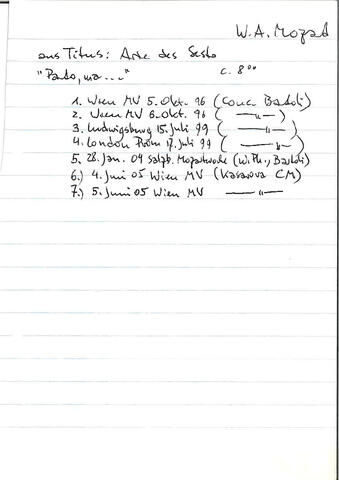 W.A. Mozart
aus Titus: Arie des Sesto
"Parto, ma..." c. 8°°
1. Wien MV 5. Okt. 96 (Conc. Bartoli)
2. Wien MV 6. Okt. 96 ( —"— )
3. Ludwigsburg 15. Juli 99 ( —"— )
4. London Prom 17. Juli 99 ( —"— )
5. 28. Jan. 04 Salzb. Mozartwoche (WPh., Bartoli)
6.) 4. Juni 05 Wien MV (Kasarova CM)
7.) 5. Juni 05 Wien MV —"—